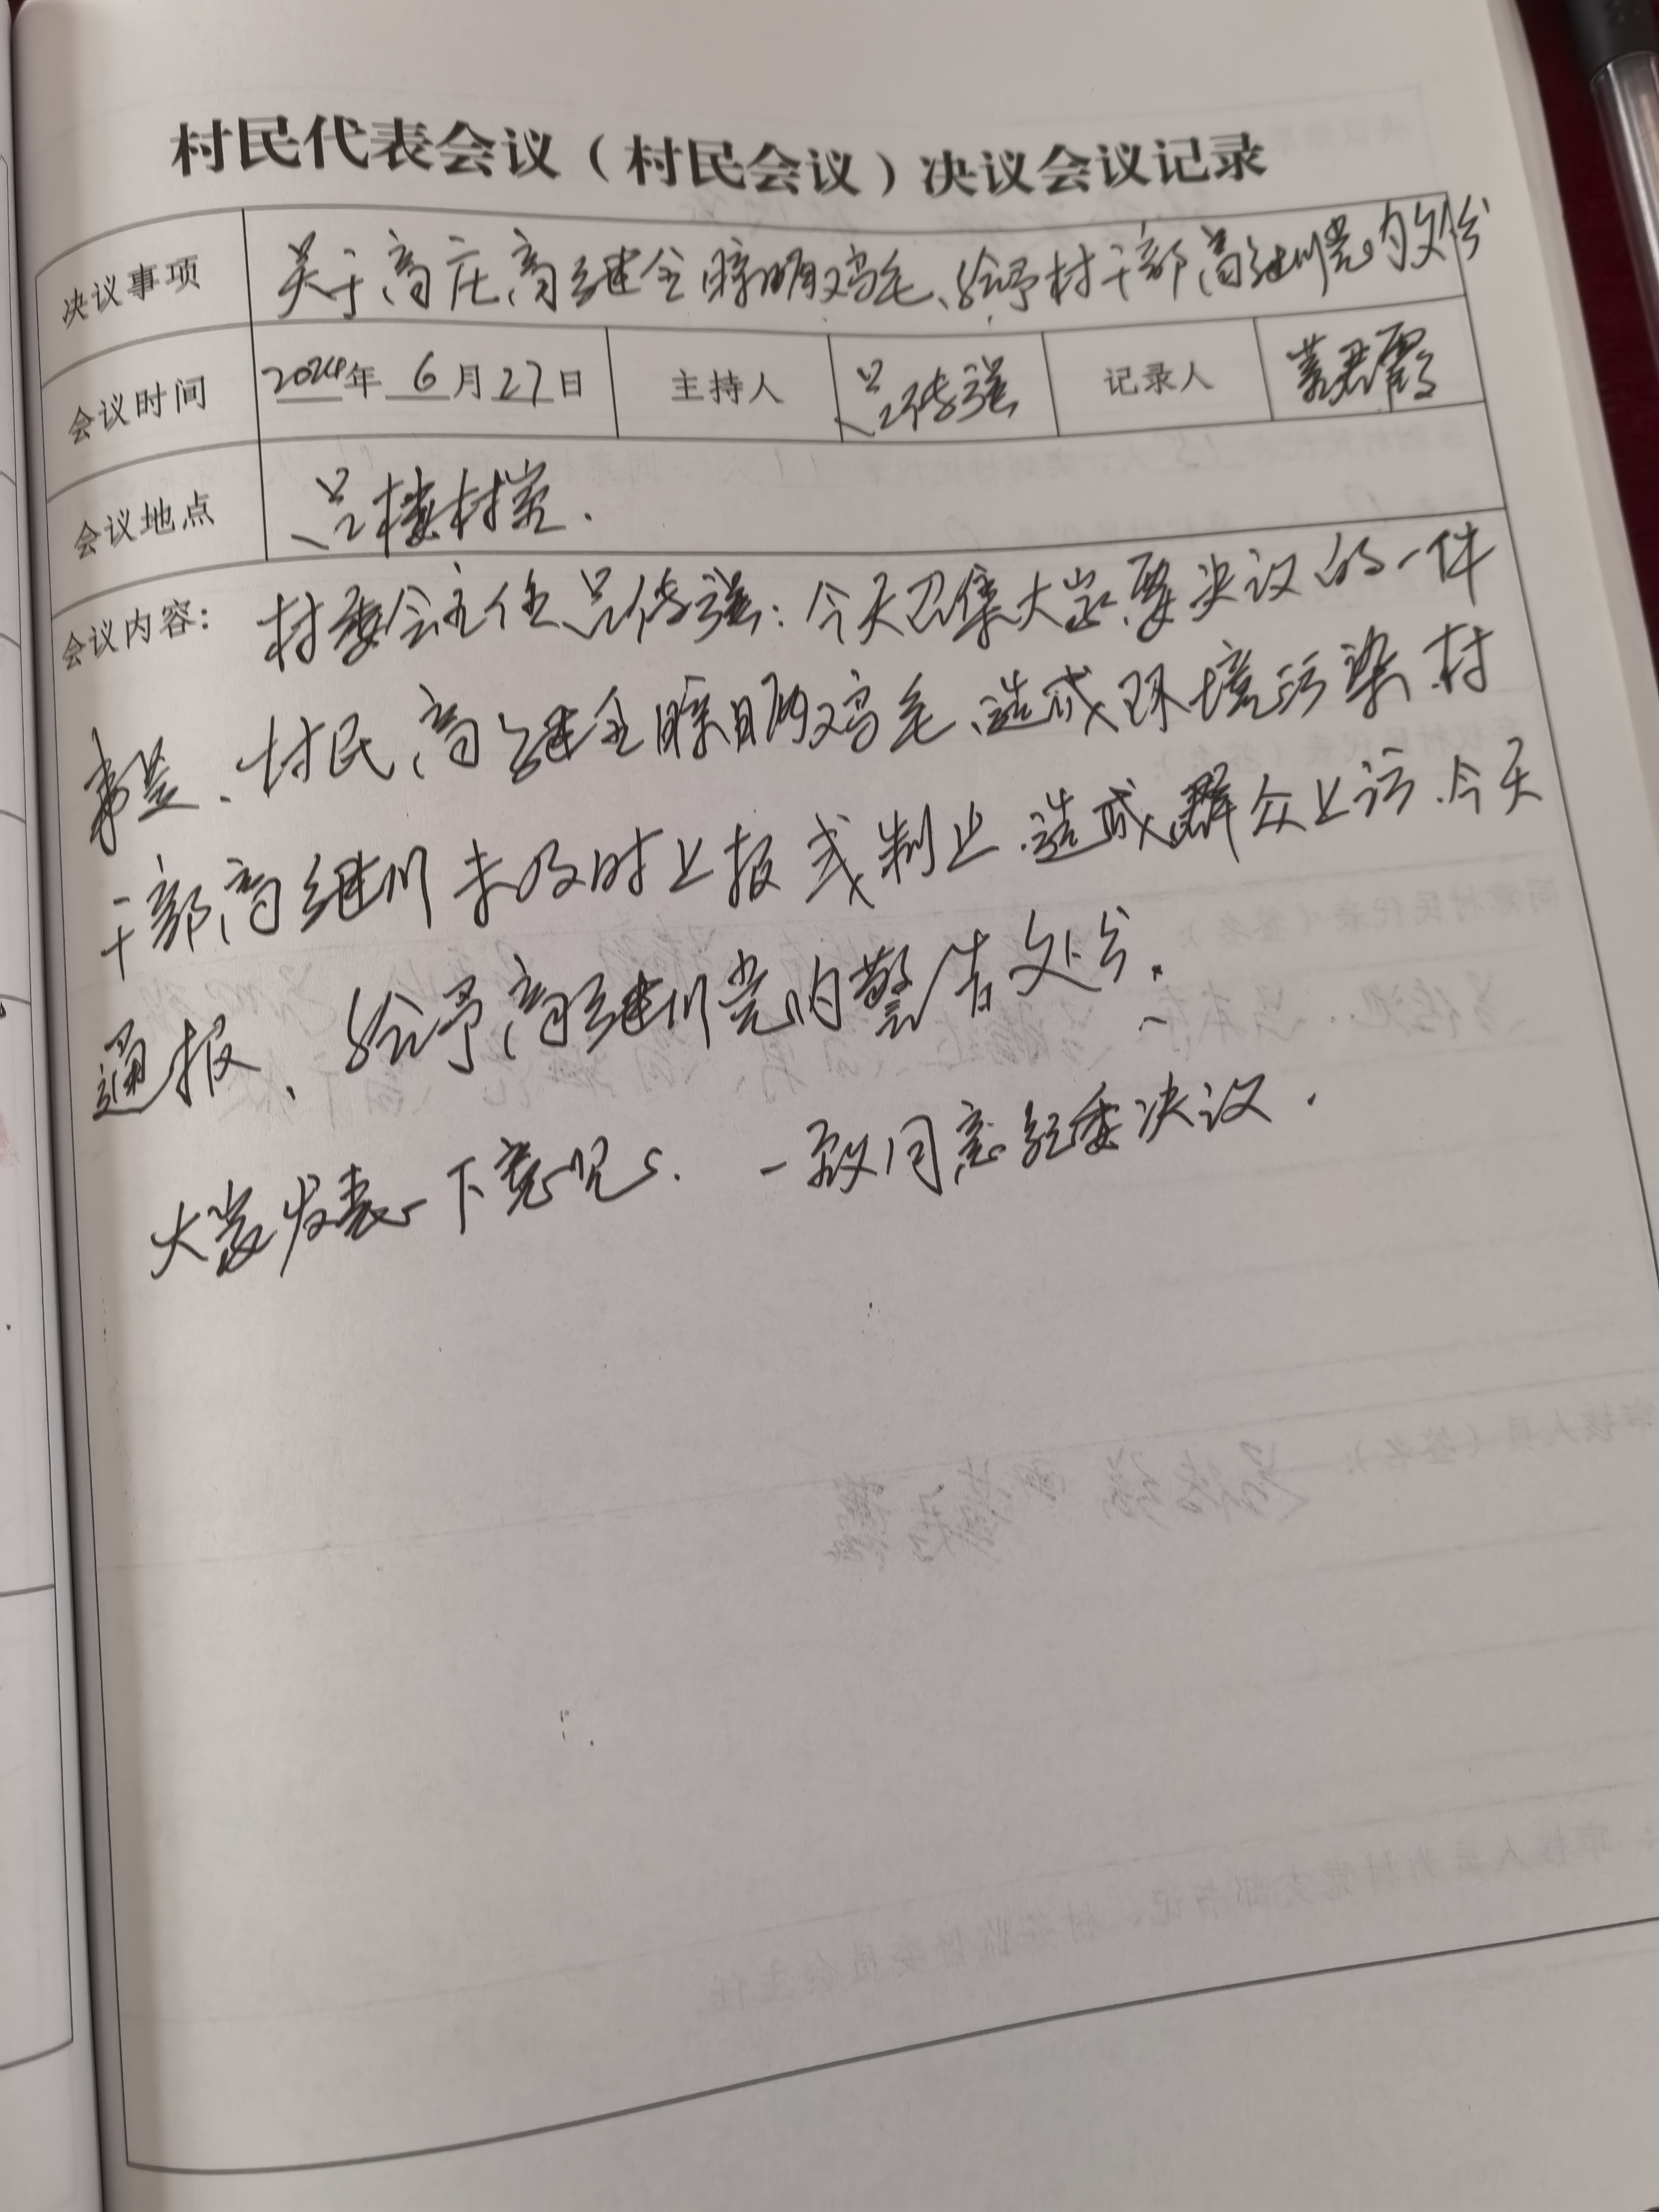 村民代表会议（村民会议）决议会议记录
决议事项 关于高庄高继全晾晒鸡毛、给予村干部高继川党内处分
会议时间 2024年 6月27日 主持人 吕传强 记录人
会议地点 吕楼村室.
会议内容： 村委会主任吕传强：今天召集大家，要决议的一件
事是、村民高继全晾晒鸡毛、造成环境污染.村
干部高继川未及时上报或制止.造成群众上访.今天
通报、给予高继川党内警告处分.
大家发表一下意见. 一致同意纪委决议.